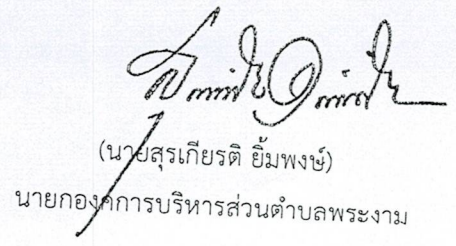 (นายสุรเกียรติ ยิ้มพงษ์)
นายกองค์การบริหารส่วนตำบลพระงาม